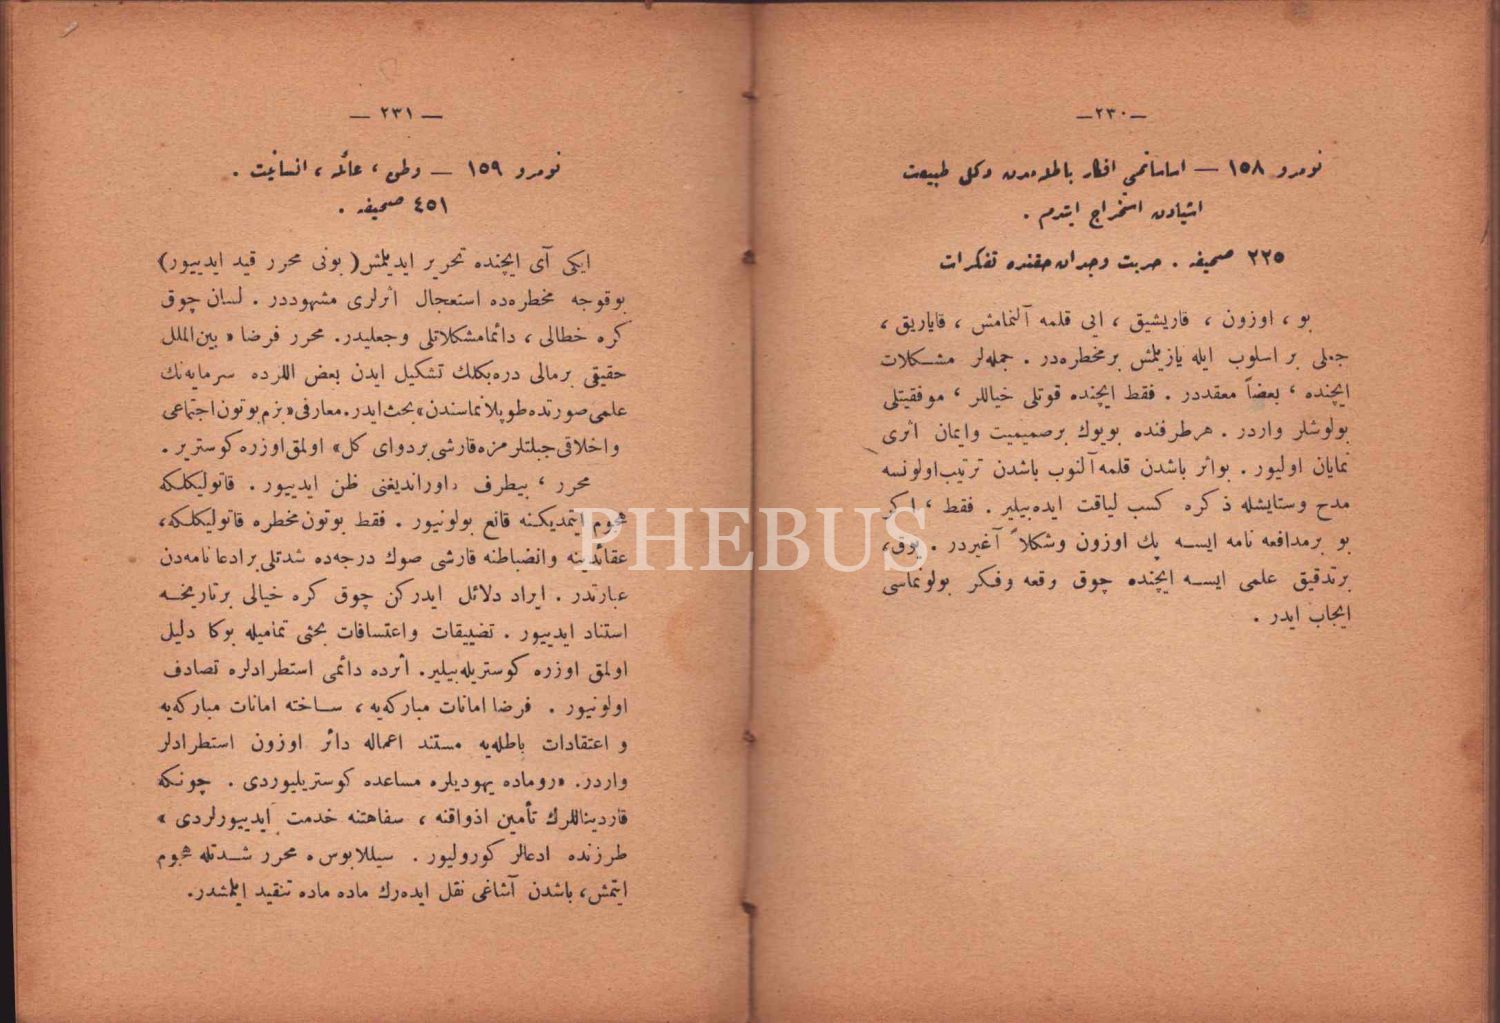 —٢٣٠—
نومرو ١٥٨ — اساساتمی افكار باطله‌دن دكل طبیعت
اشیادن استخراج ایتدم .
٢٢٥ صحیفه . حریت وجدان حقنده تفكرات
بو ، اوزون ، قاریشیق ، ایی قلمه آلنمامش ، قاباریق ،
جعلی بر اسلوب ایله یازیلمش بر مخطره‌در . جمله‌لر مشـكلات
ایچنده ، بعضاً معقددر . فقط ایچنده قوتلی خیاللر ، موفقیتلی
بولوشلر واردر . هر طرفنده بویوك بر صمیمیت وایمان اثری
نمایان اولیور . بو اثر باشدن قلمه آلنوب باشدن ترتیب اولونسه
مدح وستایشله ذكره كسب لیاقت ایده‌بیلیر . فقط ، اكر
بو بر مدافعه نامه ایسـه پك اوزون وشكلاً آغیردر . یوق،
بر تدقیق علمی ایسـه ایچنده چوق وقعه وفكر بولونماسی
ایجاب ایدر .
— ٢٣١ —
نومرو ١٥٩ — وطن ، عائله ، انسانیت .
٤٥١ صحیفه .
ایكی آی ایچنده تحریر ایدیلمش( بونی محرر قید ایدییور)
بو قوجه مخطره‌ده استعجال اثرلری مشهوددر . لسان چوق
كره خطالی ، دائما مشكلاتلی وجعلیدر. محرر فرضا « بین‌الملل
حقیقی بر مالی دره‌بكلك تشكیل ایدن بعض اللرده سرمایه‌نك
علمی صورتده طوپلانماسندن» بحث ایدر. معارفی « بزم بوتون اجتماعی
و اخلاقی جبلتلرمزه قارشی بر دوای كل» اولمق اوزره كوستریر .
محرر ، بیطرف داوراندیغنی ظن ایدییور . قاتولیكلكه
هجوم ایتمدیكنه قانع بولونیور . فقط بوتون مخطره قاتولیكلكه،
عقائدینه وانضباطنه قارشی صوك درجه‌ده شدتلی بر ادعا نامه‌دن
عبارتدر . ایراد دلائل ایدركن چوق كره خیالی بر تاریخـه
استناد ایدییور . تضییقات واعتسافات بحثی تمامیله بوكا دلیل
اولمق اوزره كوستریله‌بیلیر. اثرده دائمی استطرادلره تصادف
اولونیور . فرضا امانات مباركه‌یه ، ســاخته امانات مباركه‌یه
و اعتقادات باطله‌یه مستند اعماله دائر اوزون استطرادلر
واردر. «روماده یهودیلره مساعده كوستریلیوردی . چونكه
قاردیناللرك تأمین اذواقنه ، سفاهتنه خدمت ایدییورلردی »
طرزنده ادعالر كورولیور . سیللابوسه محرر شـدتله هجوم
ایتمش، باشدن آشاغی نقل ایده‌رك ماده ماده تنقید ایلمشدر.
PHEBUS